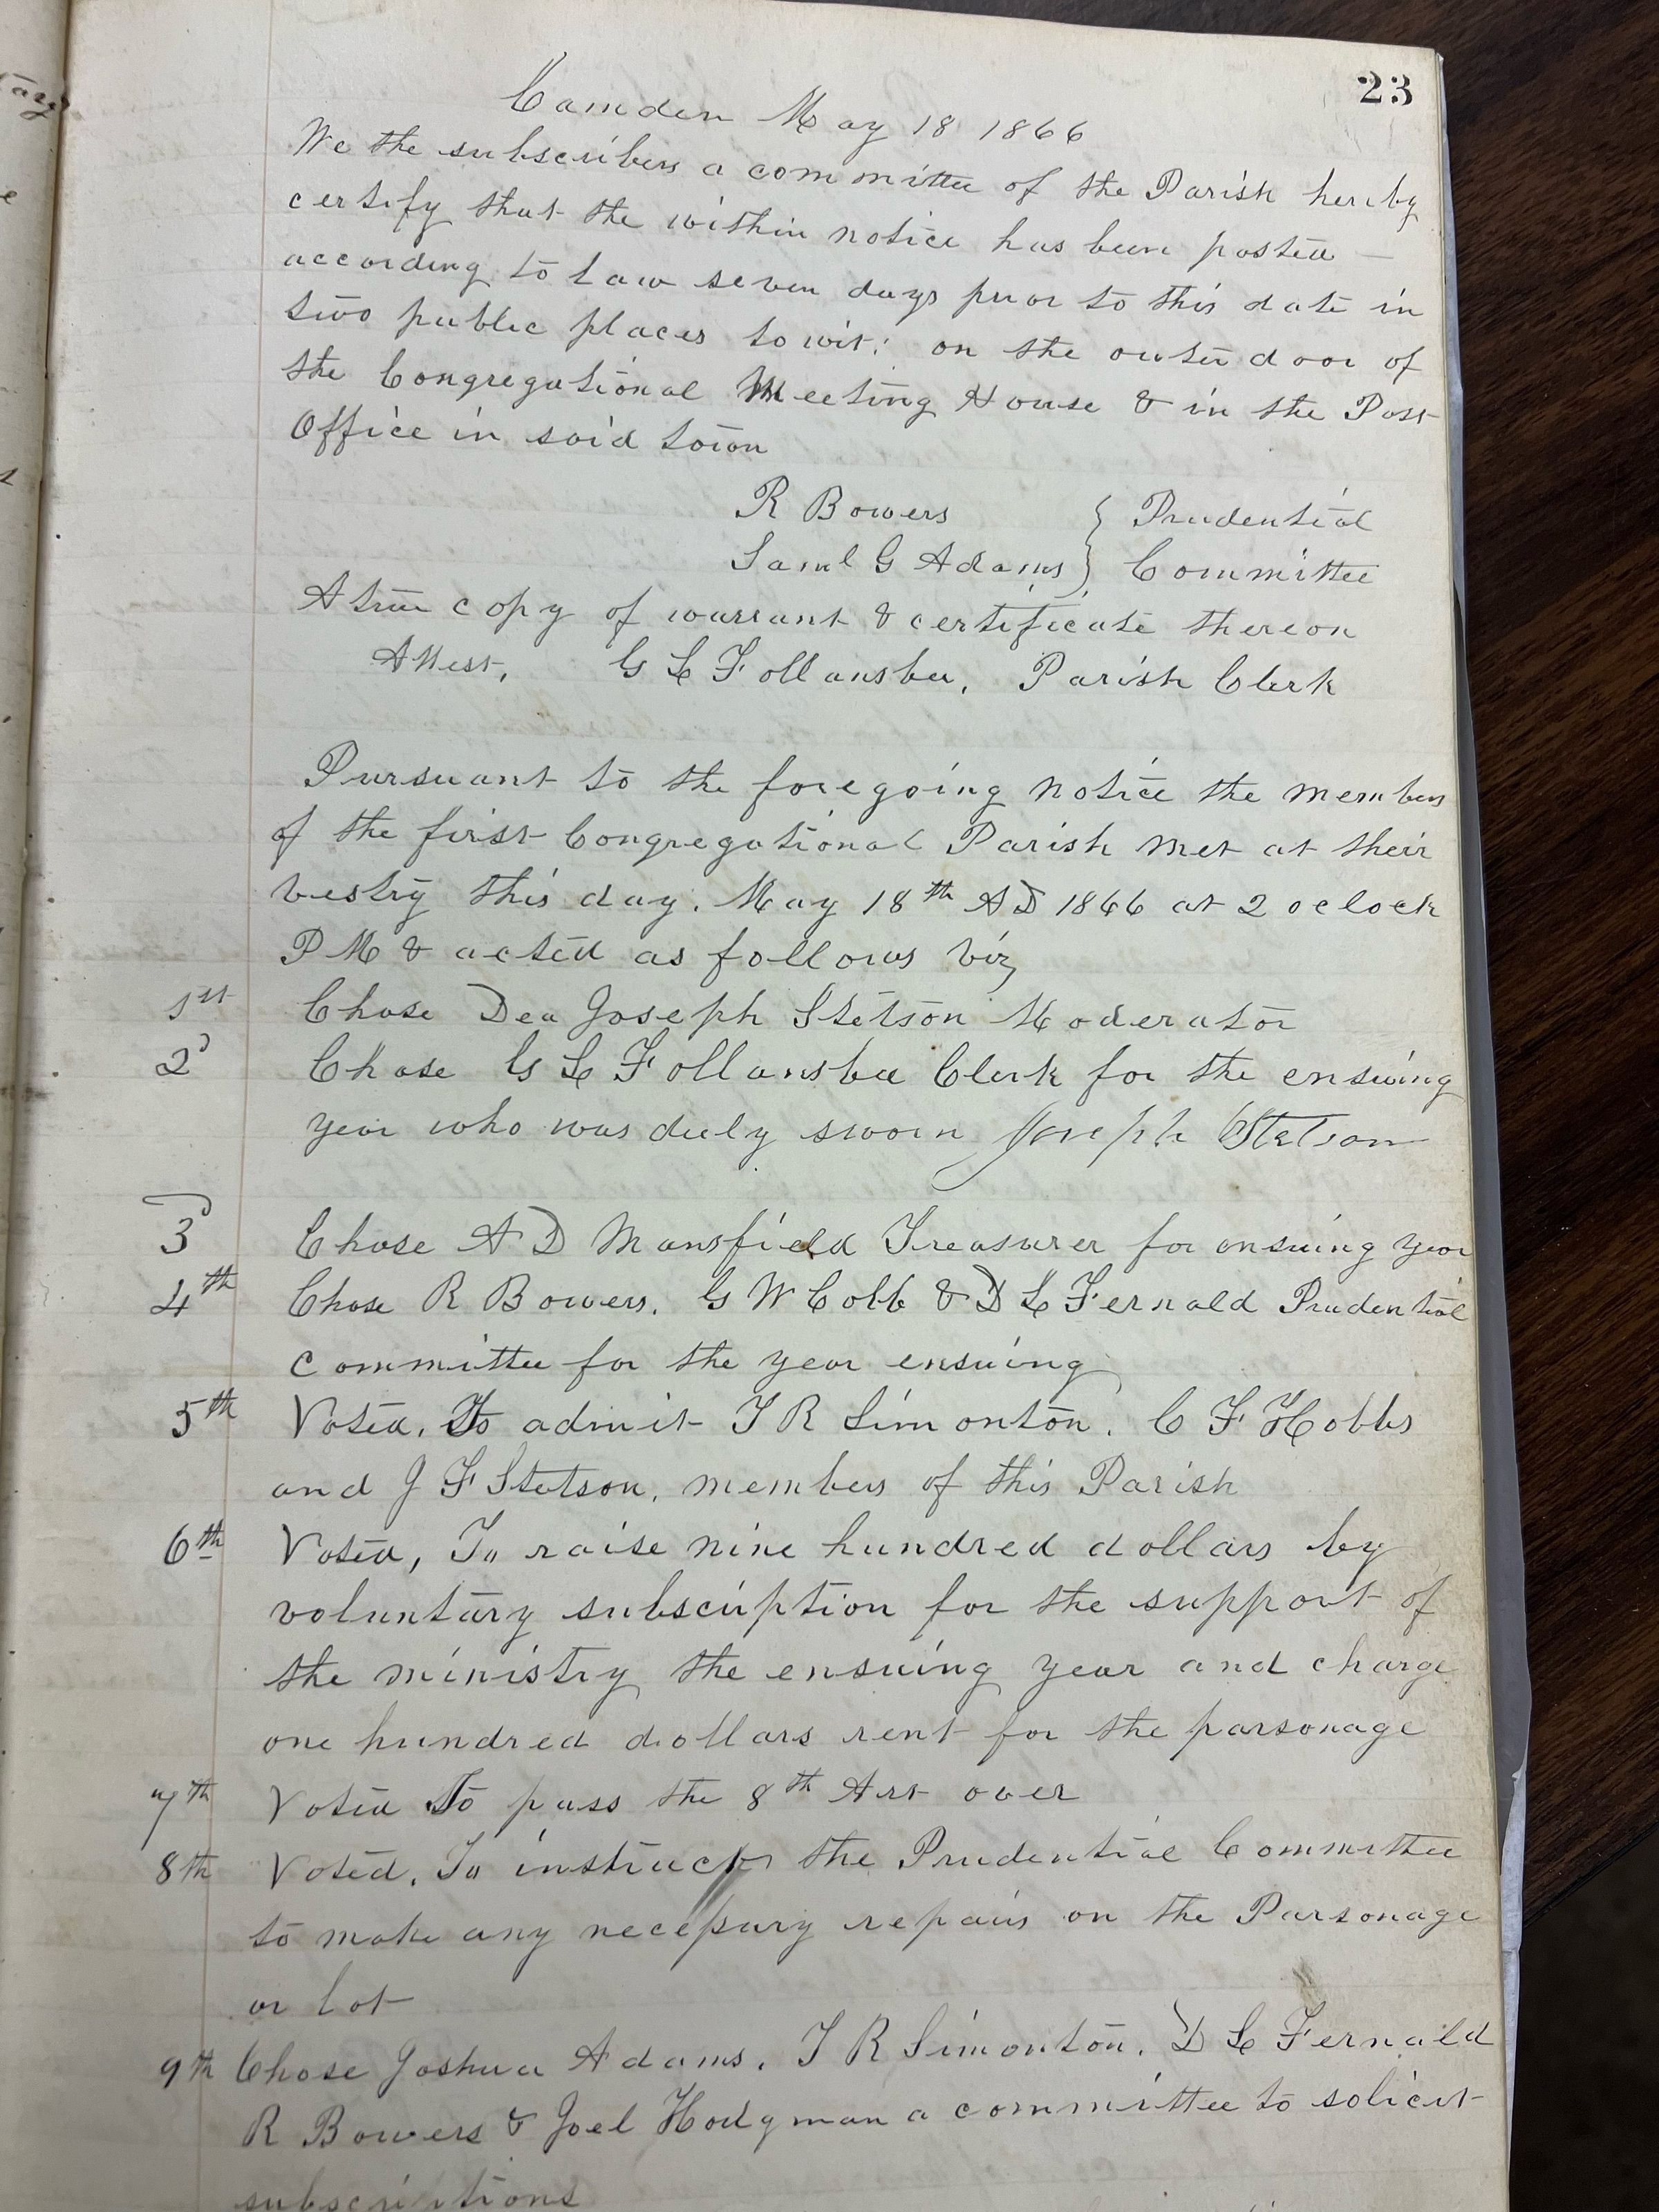 23
Camden May 18 1866
We the subscribers a committee of the Parish hereby
certify that the within notice has been posted —
according to Law seven days prior to this date in
two public places to wit: on the outer door of
the Congregational Meeting House & in the Post
Office in said town
R Bowers } Prudential
Saml G Adams } Committee
A true copy of warrant & certificate thereon
Attest, G L Follansbee, Parish Clerk
Pursuant to the foregoing notice the members
of the first Congregational Parish met at their
vestry this day. May 18th AD 1866 at 2 oclock
PM & acted as follows viz
1st Chose Dea Joseph Stetson Moderator
2d Chose G L Follansbee Clerk for the ensuing
year who was duly sworn Joseph Stetson
3d Chose A D Mansfield Treasurer for ensuing year
4th Chose R Bowers. G W Cobb & D L Fernald Prudential
committee for the year ensuing
5th Voted, To admit T R Simonton. C F Hobbs
and J F Stetson, members of this Parish
6th Voted, To raise nine hundred dollars by
voluntary subscription for the support of
the ministry the ensuing year and charge
one hundred dollars rent for the parsonage
7th Voted To pass the 8th Art over
8th Voted, To instruct the Prudential Committee
to make any necessary repairs on the Parsonage
or lot
9th Chose Joshua Adams, T R Simonton. D L Fernald
R Bowers & Joel Hodgman a committee to solicit
subscriptions